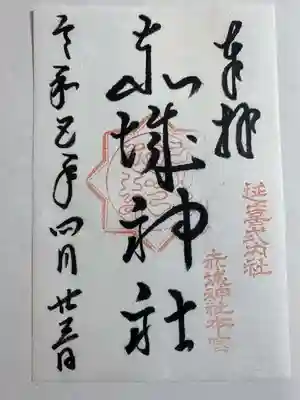 奉拝
延喜式内社
赤城神社本宮
赤城神社
令和五年四月廿三日